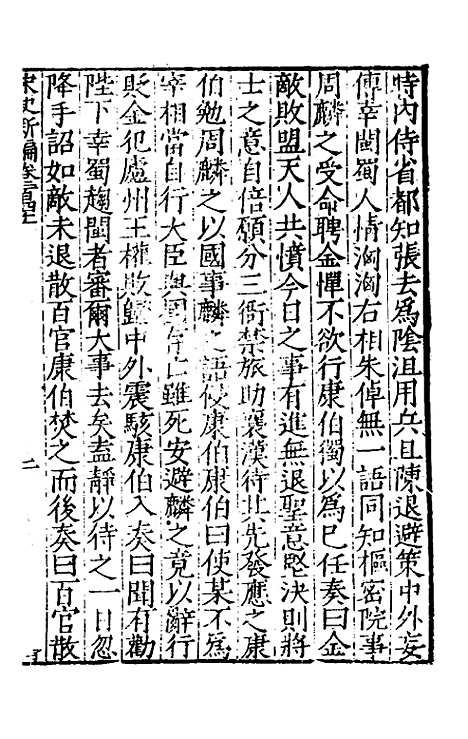 時內侍省都知張去爲陰沮用兵且陳退避策中外妄
傳幸閩蜀人情洶洶右相朱倬無一語同知樞密院事
周麟之受命聘金憚不欲行康伯獨以爲已任奏曰金
敵敗盟天人共憤今日之事有進無退聖意堅決則將
士之意自倍願分三衙禁旅助襄漢待其先發應之康
伯勉周麟之以國事麟之語侵康伯康伯曰使某不爲
宰相當自行大臣與國存亡雖死安避麟之竟以辭行
貶金犯廬州王權敗歸中外震駭康伯入奏曰聞有勸
陛下幸蜀趨閩者審爾大事去矣盍靜以待之一日忽
降手詔如敵未退散百官康伯焚之而後奏曰百官散
宋史新編卷一百
二